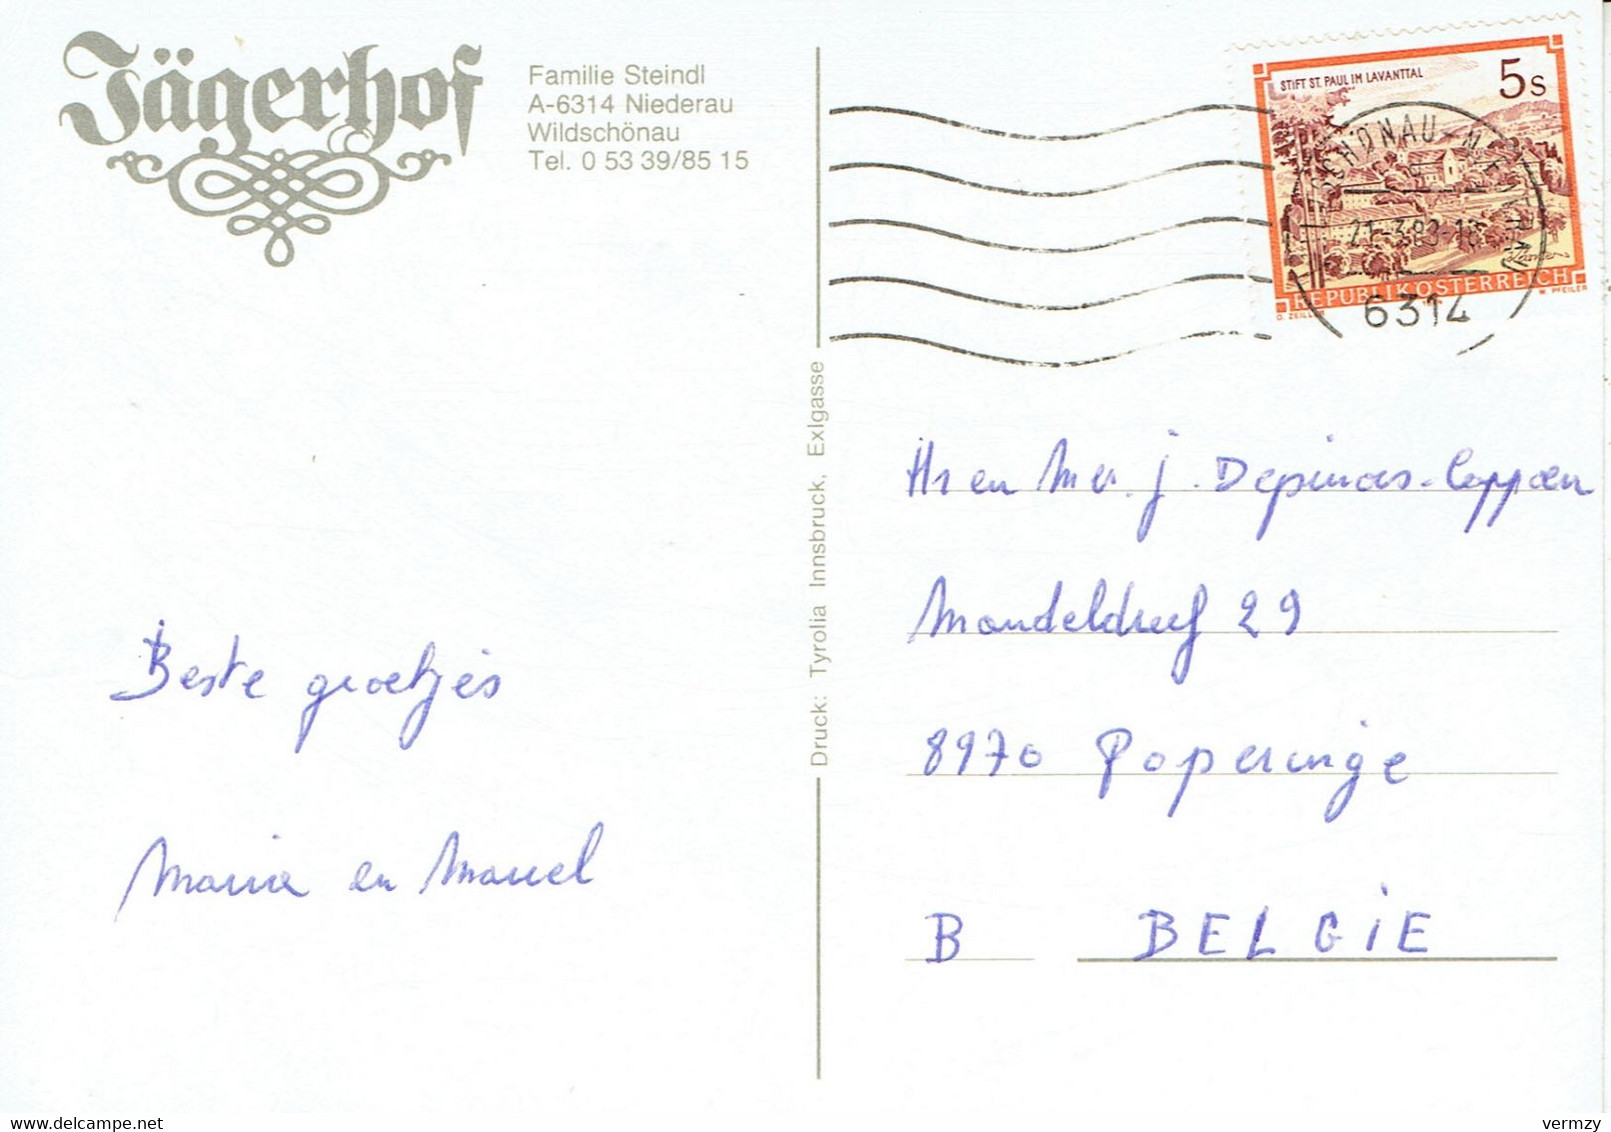 Jägerhof
Familie Steindl
A-6314 Niederau
Wildschönau
Tel. 0 53 39/85 15
STIFT ST. PAUL IM LAVANTTAL
5s
REPUBLIK ÖSTERREICH
W. PFEILER
6314
Druck: Tyrolia Innsbruck, Exlgasse
Beste groetjes
Maria en Marcel
Hr en Mevr. j.
8970 Poperinge
B BELGIE
delcampe.net
vermzy